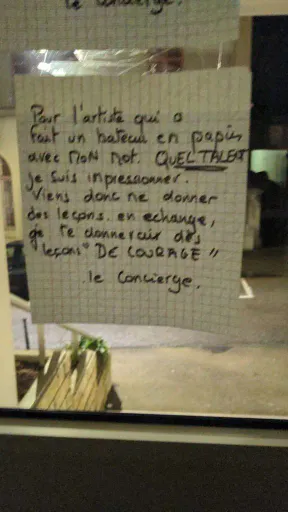 le concierge.
Pour l'artiste qui a
fait un bateau en papier
avec MON mot. QUEL TALENT
je suis inpressionner.
Viens donc ne donner
des leçons. en echange,
je te donnerair des
"leçons" DE COURAGE "
le concierge.